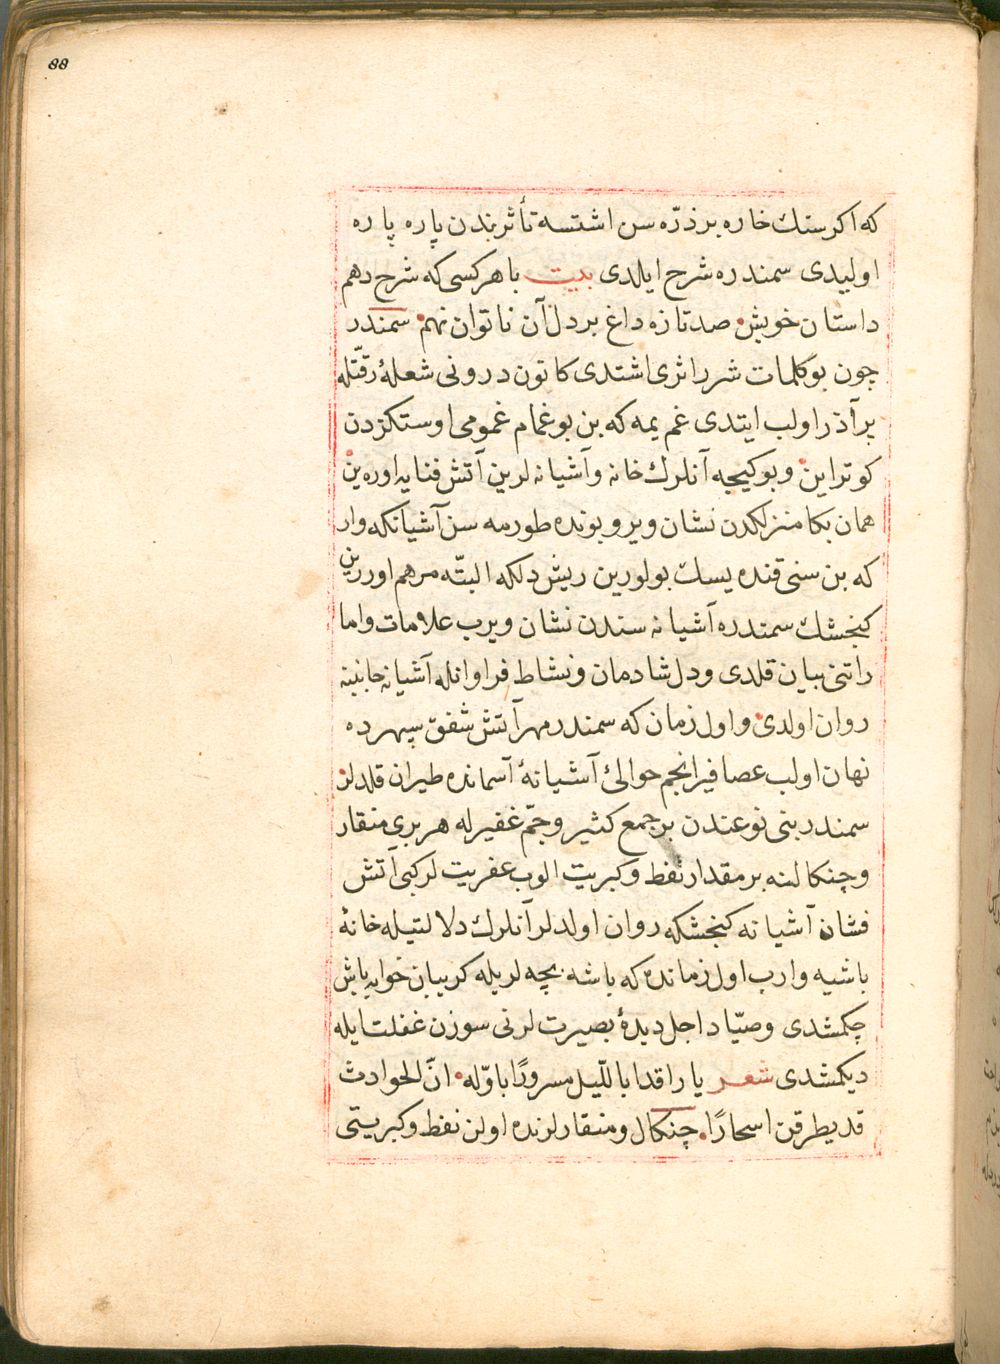 88
که اکر سنك خاره بر ذرّه سن اشتسه تأثربندن پاره پاره
اولیدی سمندره شرح ایلدی بیت با هر کسی که شرح دهم
داستان خویش صد تازه داغ بر دل آن ناتوان نهم سمندر
چون بو کلمات شرر اثری اشتدی کاتون درونی شعلهٔ رقتله
پر آذر اولب ایتدی غم یمه که بن بو غمام غمومی اوستکزدن
کوتراین و بو کیجه آنلرك خانه و آشیانه لرین آتش فنایه اوره ین
همان بکا منزلکدن نشان ویر و بونده طورمه سن آشیانکه وار
که بن سنی قنده یسك بولورین ریش دلکه البتّه مرهم اوررین
کنجشك سمندره آشیانه سندن نشان ویرب علامات و اما
راتنی بیان قلدی و دل شادمان و نشاط فراوانله آشیانه جانبنه
روان اولدی و اول زمان که سمندر مهر آتش شفق سپهرده
نهان اولب عصافیر انجم حوالئ آشیانهٔ آسمانده طیران قلدلر
سمندر بنی نوعندن بر جمع کثیر و جمّ غفیر له هر بری منقار
و چنکالنه بر مقدار نفط و کبریت الوب عفریت لر کبی آتش
فشان آشیانه کنجشکه روان اولدلر آنلرك دلالتیله خانهٔ
باشیه وارب اول زمانده که باشه بچه لریله کریبان خوابه باش
چکمشدی و صیّاد اجل دیدهٔ بصیرت لرنی سوزن غفلت ایله
دیکمشدی شعر یا راقدا باللّیل مسرورًا باوّله انّ الحوادث
قد یطرقن اسحارًا چنکال و منقار لرنده اولن نفط و کبریتی